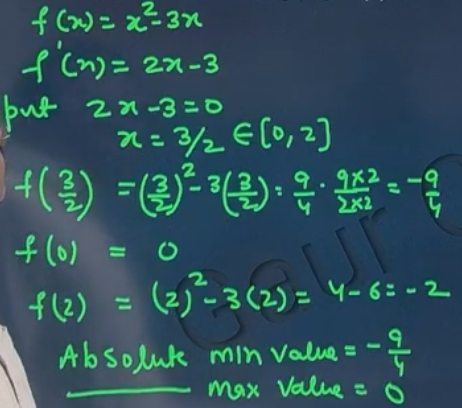 f(x) = x²-3x
f'(x) = 2x-3
put 2x-3=0
x = 3/2 ∈ [0,2]
f(3/2) = (3/2)²-3(3/2) = 9/4 - 9×2/2×2 = -9/4
f(0) = 0
f(2) = (2)²-3(2) = 4-6 = -2
Absolute min value = -9/4
max value = 0